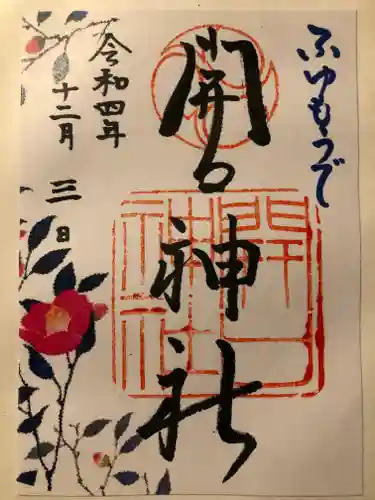 ふゆもうで
開口神社
令和四年
十二月 三日
開口神社